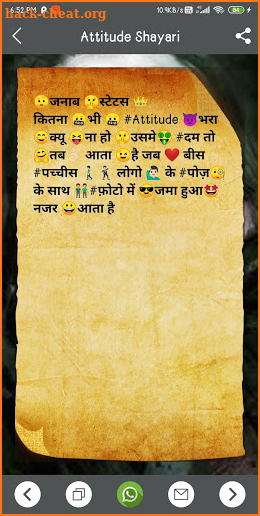 hack-cheat.org
6:52 PM
10.9KB/s
84
Attitude Shayari
😗जनाब 🤫स्टेटस 👑
कितना 😬भी 😬 #Attitude 😈भरा
😄क्यू 😝ना हो 🤫उसमे🤑 #दम तो
🤗तब👈🏻 आता 😉है जब ❤️ बीस
#पच्चीस 🚶🕺 लोगो 🙋🏻‍♂️ के #पोज़🧐
के साथ 👬#फ़ोटो में 😎जमा हुआ🤩
नजर 😀आता है
hack-cheat.org